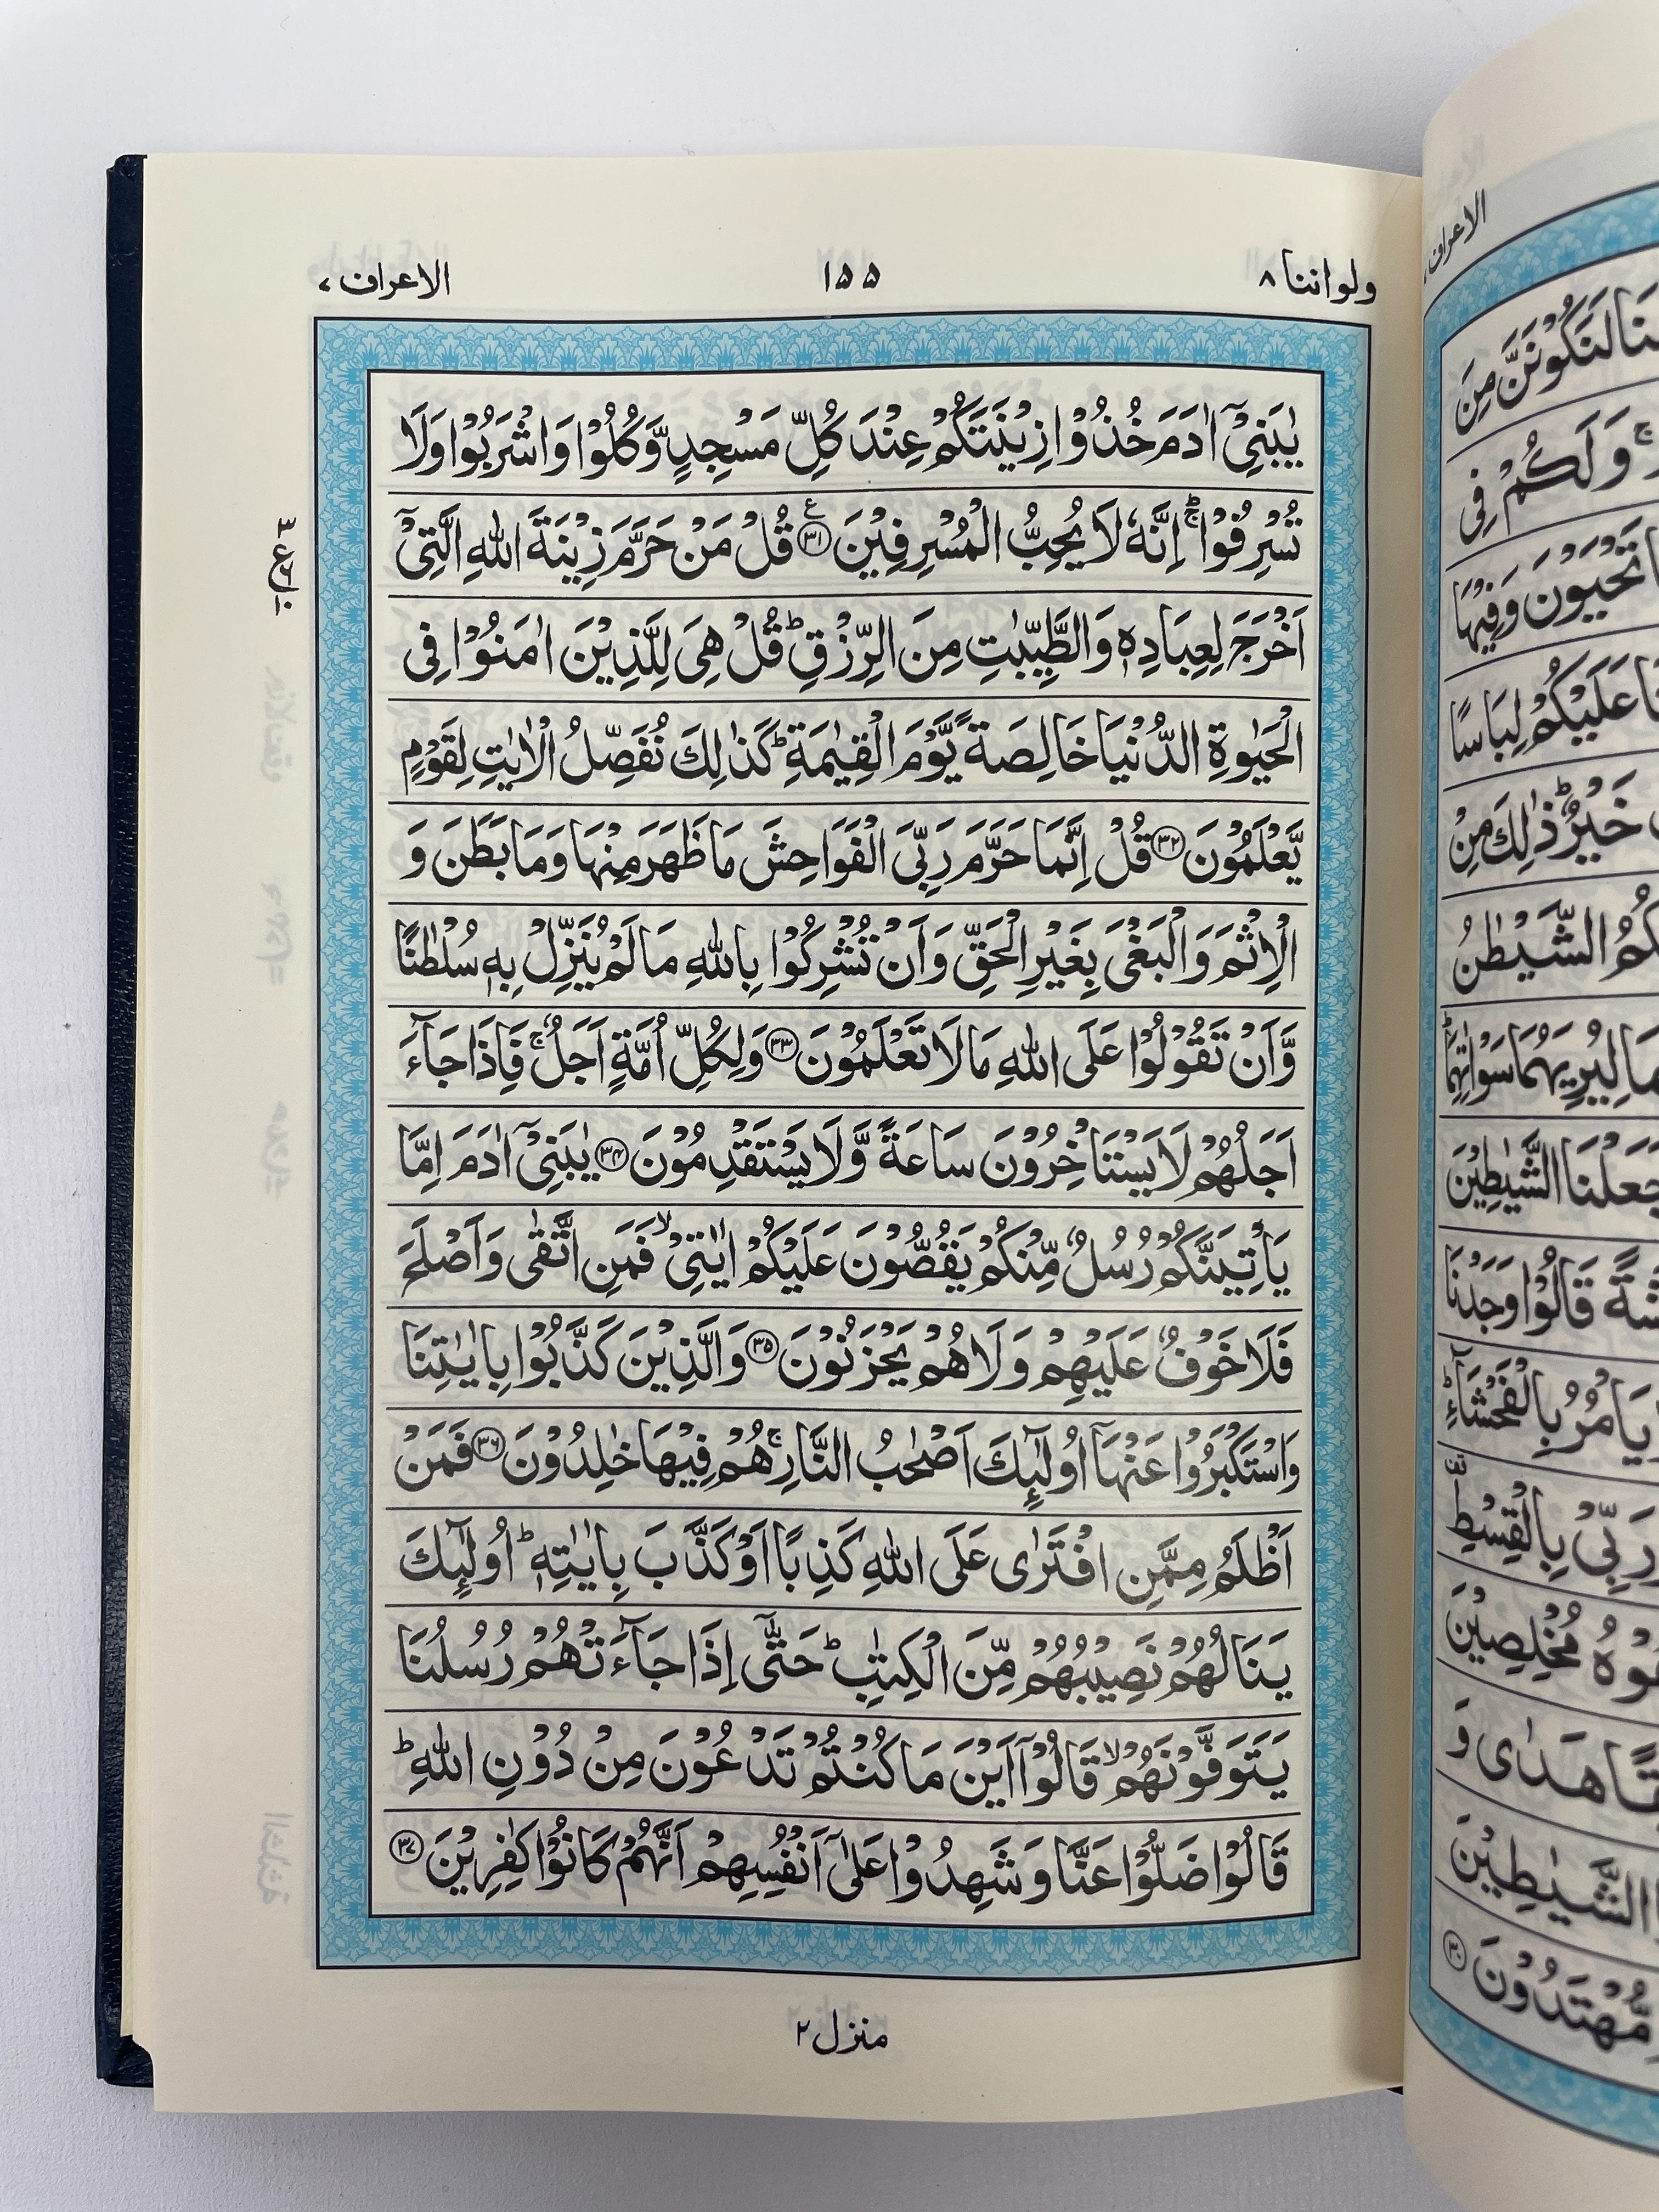 ولواننا ٨
١٥٥
الاعراف ٧
يٰبَنِيْۤ اٰدَمَ خُذُوْا زِيْنَتَكُمْ عِنْدَ كُلِّ مَسْجِدٍ وَّكُلُوْا وَاشْرَبُوْا وَلَا
تُسْرِفُوْا ۚؕ اِنَّهٗ لَا يُحِبُّ الْمُسْرِفِيْنَ ﴿٣١﴾ ع قُلْ مَنْ حَرَّمَ زِيْنَةَ اللّٰهِ الَّتِيْۤ
اَخْرَجَ لِعِبَادِهٖ وَالطَّيِّبٰتِ مِنَ الرِّزْقِ ؕ قُلْ هِيَ لِلَّذِيْنَ اٰمَنُوْا فِي
الْحَيٰوةِ الدُّنْيَا خَالِصَةً يَّوْمَ الْقِيٰمَةِ ؕ كَذٰلِكَ نُفَصِّلُ الْاٰيٰتِ لِقَوْمٍ
يَّعْلَمُوْنَ ﴿٣٢﴾ قُلْ اِنَّمَا حَرَّمَ رَبِّيَ الْفَوَاحِشَ مَا ظَهَرَ مِنْهَا وَمَا بَطَنَ وَ
الْاِثْمَ وَالْبَغْيَ بِغَيْرِ الْحَقِّ وَاَنْ تُشْرِكُوْا بِاللّٰهِ مَا لَمْ يُنَزِّلْ بِهٖ سُلْطٰنًا
وَّاَنْ تَقُوْلُوْا عَلَى اللّٰهِ مَا لَا تَعْلَمُوْنَ ﴿٣٣﴾ وَلِكُلِّ اُمَّةٍ اَجَلٌ ۚ فَاِذَا جَآءَ
اَجَلُهُمْ لَا يَسْتَاْخِرُوْنَ سَاعَةً وَّلَا يَسْتَقْدِمُوْنَ ﴿٣٤﴾ يٰبَنِيْۤ اٰدَمَ اِمَّا
يَاْتِيَنَّكُمْ رُسُلٌ مِّنْكُمْ يَقُصُّوْنَ عَلَيْكُمْ اٰيٰتِيْ ۙ فَمَنِ اتَّقٰى وَاَصْلَحَ
فَلَا خَوْفٌ عَلَيْهِمْ وَلَا هُمْ يَحْزَنُوْنَ ﴿٣٥﴾ وَالَّذِيْنَ كَذَّبُوْا بِاٰيٰتِنَا
وَاسْتَكْبَرُوْا عَنْهَاۤ اُولٰٓئِكَ اَصْحٰبُ النَّارِ ۚ هُمْ فِيْهَا خٰلِدُوْنَ ﴿٣٦﴾ فَمَنْ
اَظْلَمُ مِمَّنِ افْتَرٰى عَلَى اللّٰهِ كَذِبًا اَوْ كَذَّبَ بِاٰيٰتِهٖ ؕ اُولٰٓئِكَ
يَنَالُهُمْ نَصِيْبُهُمْ مِّنَ الْكِتٰبِ ؕ حَتّٰۤى اِذَا جَآءَتْهُمْ رُسُلُنَا
يَتَوَفَّوْنَهُمْ ۙ قَالُوْۤا اَيْنَ مَا كُنْتُمْ تَدْعُوْنَ مِنْ دُوْنِ اللّٰهِ ؕ
قَالُوْا ضَلُّوْا عَنَّا وَشَهِدُوْا عَلٰۤى اَنْفُسِهِمْ اَنَّهُمْ كَانُوْا كٰفِرِيْنَ ﴿٣٧﴾
منزل ٢
الاعراف
لَنَكُوْنَنَّ مِنَ
وَلَكُمْ فِي
تَحْيَوْنَ وَفِيْهَا
عَلَيْكُمْ لِبَاسًا
خَيْرٌ ؕ ذٰلِكَ مِنْ
الشَّيْطٰنُ
لِيُرِيَهُمَا سَوْاٰتِهِمَا ؕ
جَعَلْنَا الشَّيٰطِيْنَ
قَالُوْا وَجَدْنَا
يَاْمُرُ بِالْفَحْشَآءِ ؕ
رَبِّيْ بِالْقِسْطِ
مُخْلِصِيْنَ
هَدٰى وَ
الشَّيٰطِيْنَ
مُّهْتَدُوْنَ ﴿٣٠﴾